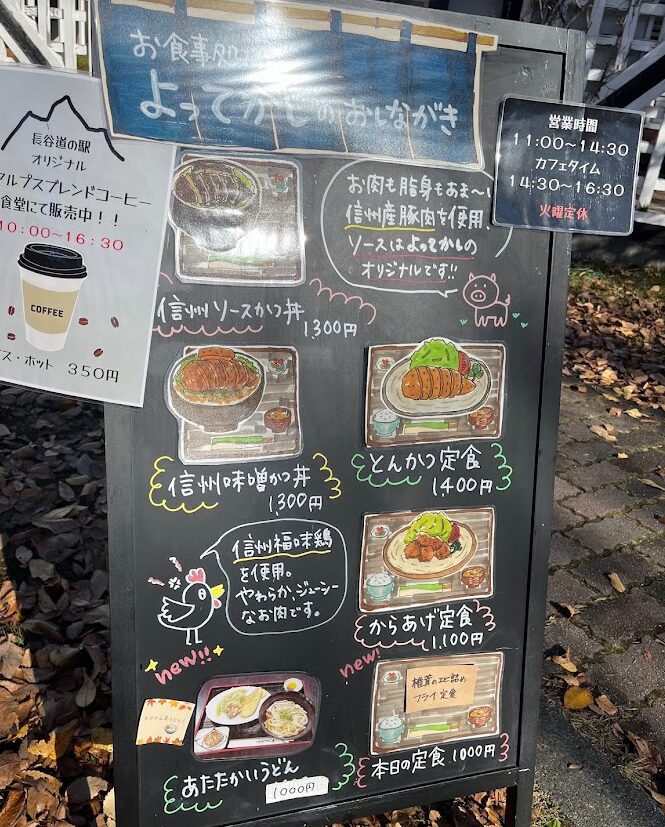 お食事処
よってかしのおしながき
長谷道の駅
オリジナル
アルプスブレンドコーヒー
食堂にて販売中！！
10:00～16:30
COFFEE
ス・ホット 350円
営業時間
11:00～14:30
カフェタイム
14:30～16:30
火曜定休
お肉も脂身もあま～い
信州産豚肉を使用、
ソースはよってかしの
オリジナルです!!
信州ソースかつ丼
1,300円
信州味噌かつ丼
1,300円
とんかつ定食
1,400円
信州福味鶏
を使用。
やわらか、ジューシー
なお肉です。
からあげ定食
1,100円
new!!
あたたかいうどん
1000円
new!
椎茸のエビ詰め
フライ定食
本日の定食 1000円